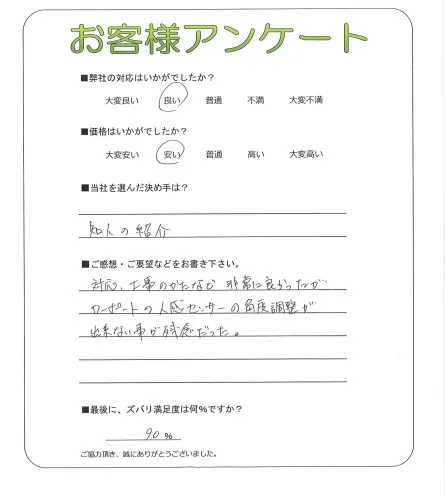 お客様アンケート
■弊社の対応はいかがでしたか?
大変良い 良い 普通 不満 大変不満
■価格はいかがでしたか?
大変安い 安い 普通 高い 大変高い
■当社を選んだ決め手は?
知人の紹介
■ご感想・ご要望などをお書き下さい。
対応、工事のかたなど 非常に良かったが
カーポートの人感センサーの角度調整が
出来ない事が残念だった。
■最後に、ズバリ満足度は何%ですか?
90 %
ご協力頂き、誠にありがとうございました。